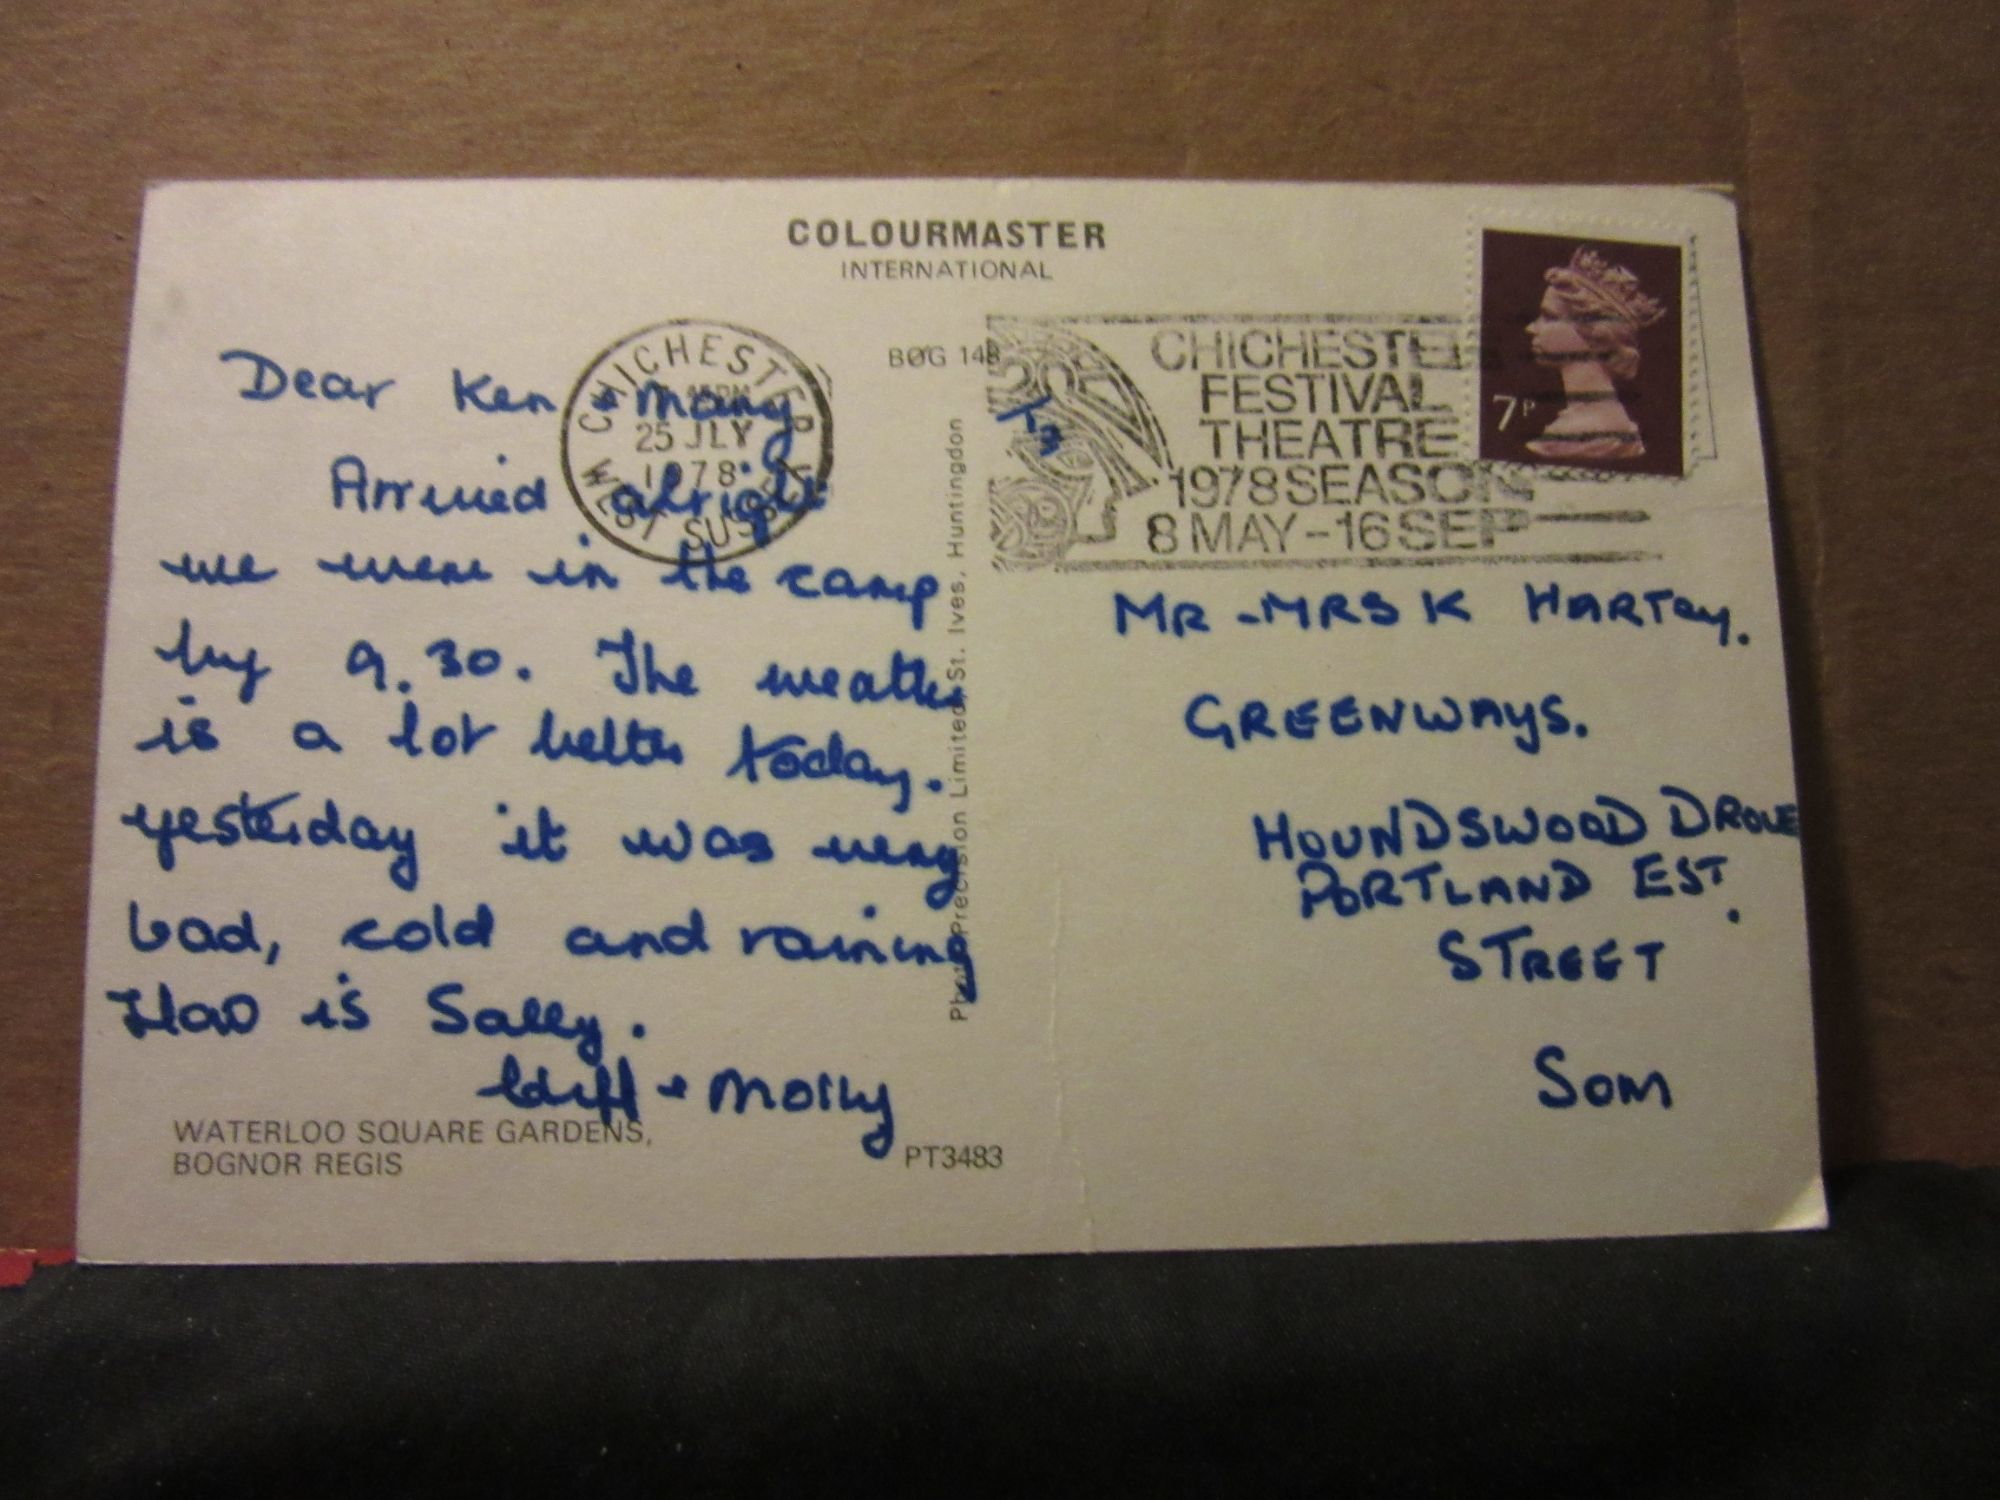 COLOURMASTER
INTERNATIONAL
BOG 148
CHICHESTER
WEST SUSSEX
45PM
25 JLY
1978
CHICHESTER
FESTIVAL
THEATRE
1978 SEASON
8 MAY - 16 SEP
7P
Dear Ken + Mary
Arrived alright
we were in the camp
by 9.30. The weather
is a lot better today.
yesterday it was very
bad, cold and raining
How is Sally.
+ Molly
To
MR - MRS K
GREENWAYS.
HOUNDSWOOD DROVE
PORTLAND EST.
STREET
SOM
Photo Precision Limited, St. Ives, Huntingdon
WATERLOO SQUARE GARDENS,
BOGNOR REGIS
PT3483